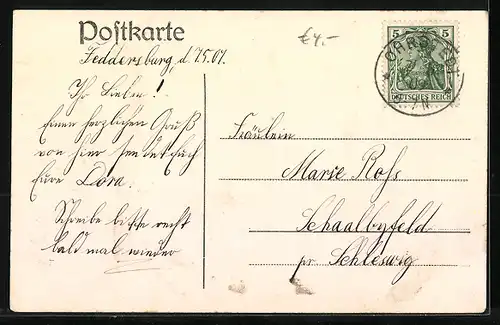 Postkarte
€4.-
5 5
DEUTSCHES REICH
Feddersburg, d. 7.5.07.
Ihr Lieben!
Einen herzlichen Gruß
von hier sendet Euch
Eure Dora.
Schreibe bitte recht
bald mal wieder
Fräulein
Marie Rofs
Schaalbyfeld
pr Schleswig